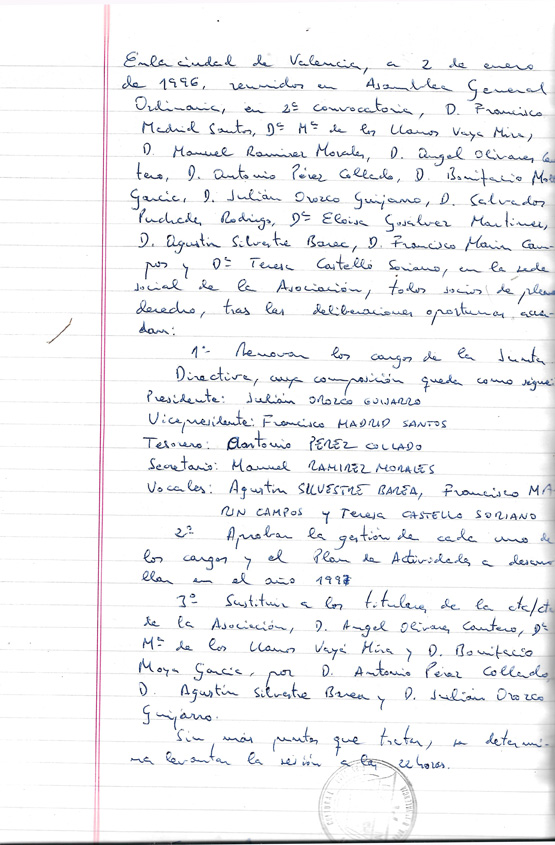 En la ciudad de Valencia, a 2 de enero
de 1996, reunidos en Asamblea General
Ordinaria, en 2ª convocatoria, D. Francisco
Madrid Santos, Dª Mª de los Llanos Vaya Mira,
D. Manuel Ramirez Morales, D. Angel Olivares Can
tero, D. Antonio Pérez Collado, D. Bonifacio Moya
Garcia, D. Julián Orozco Guijarro, D. Salvador
Puchades Rodrigo, Dª Eloisa Gosalvez Martinez,
D. Agustin Silvestre Barea, D. Francisco Marin Cam-
pos y Dª Teresa Castelló Soriano, en la sede
social de la Asociación, todos socios de pleno
derecho, tras las deliberaciones oportunas acuer
dan:
1º Renovar los cargos de la Junta
Directiva, cuya composición queda como sigue:
Presidente: Julián OROZCO GUIJARRO
Vicepresidente: Francisco MADRID SANTOS
Tesorero: Antonio PÉREZ COLLADO
Secretario: Manuel RAMIREZ MORALES
Vocales: Agustin SILVESTRE BAREA, Francisco MA
RIN CAMPOS y Teresa CASTELLO SORIANO
2º Aprobar la gestión de cada uno de
los cargos y el Plan de Actividades a desarro
llar en el año 1997
3º Sustituir a los titulares de la cta/cte
de la Asociación, D. Angel Olivares Cantero, Dª
Mª de los Llanos Vayá Mira y D. Bonifacio
Moya Garcia, por D. Antonio Pérez Collado,
D. Agustin Silvestre Barea y D. Julián Orozco
Guijarro.
Sin más puntos que tratar, se determi-
na levantar la sesión a las 22 horas.